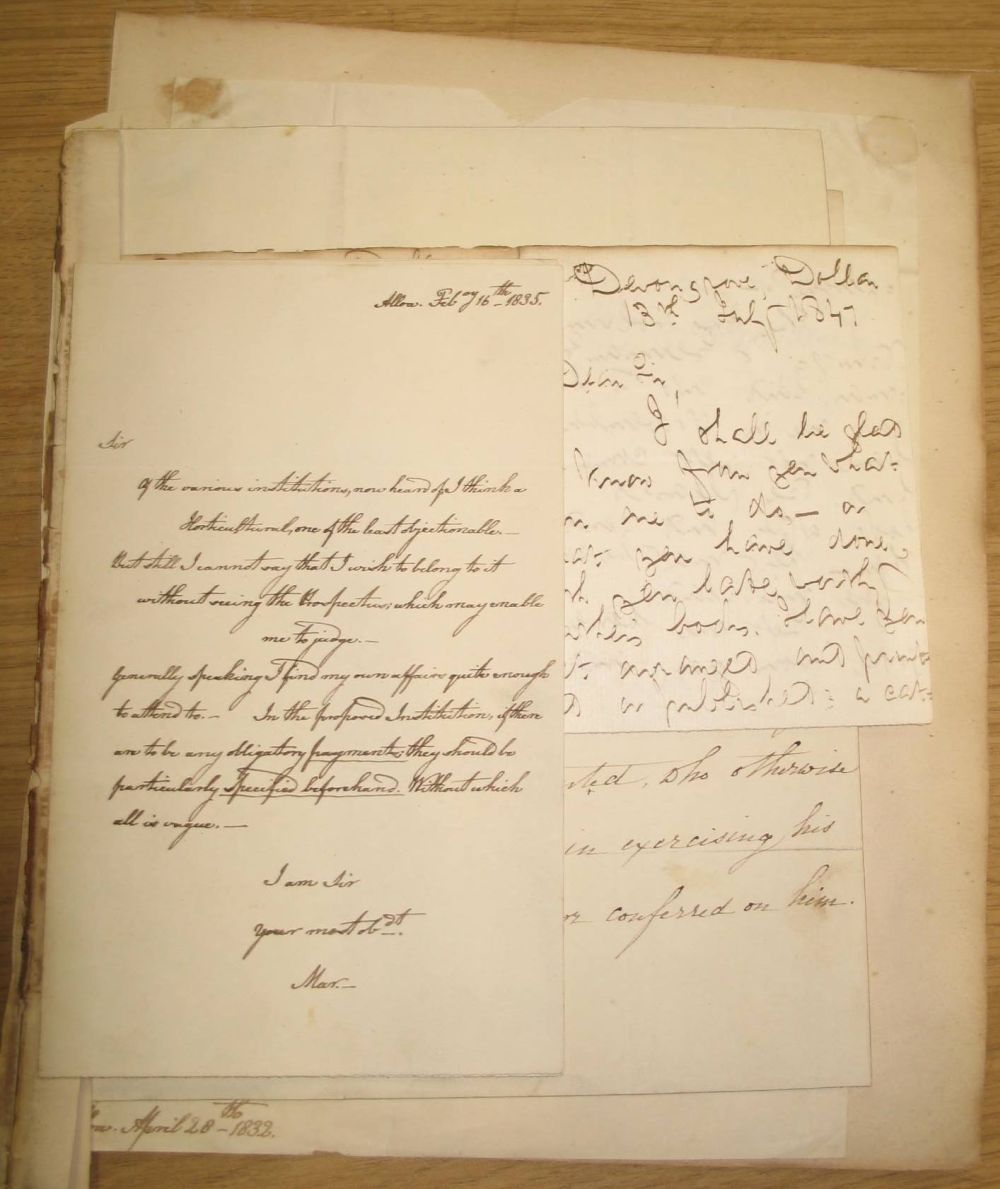 Alloa. Feby. 16th 1835.
Sir
Of the various institutions, now heard of, I think a
Horticultural, one of the least objectionable. —
But still I cannot say that I wish to belong to it
without seeing the Prospectus; which may enable
me to judge. —
Generally speaking I find my own affairs quite enough
to attend to. — In the proposed Institution, if there
are to be any obligatory payments; they should be
particularly specified beforehand. Without which
all is vague. —
I am Sir
your most obdt.
Mar. —
Devongrove, Dollar
13th July 1847
Dear Sir,
I shall be glad
know from you what
me to do — or
you have done
you have with
body. Have you
and
published : a cat-
, who otherwise
in exercising his
conferred on him.
April 28th 1832.